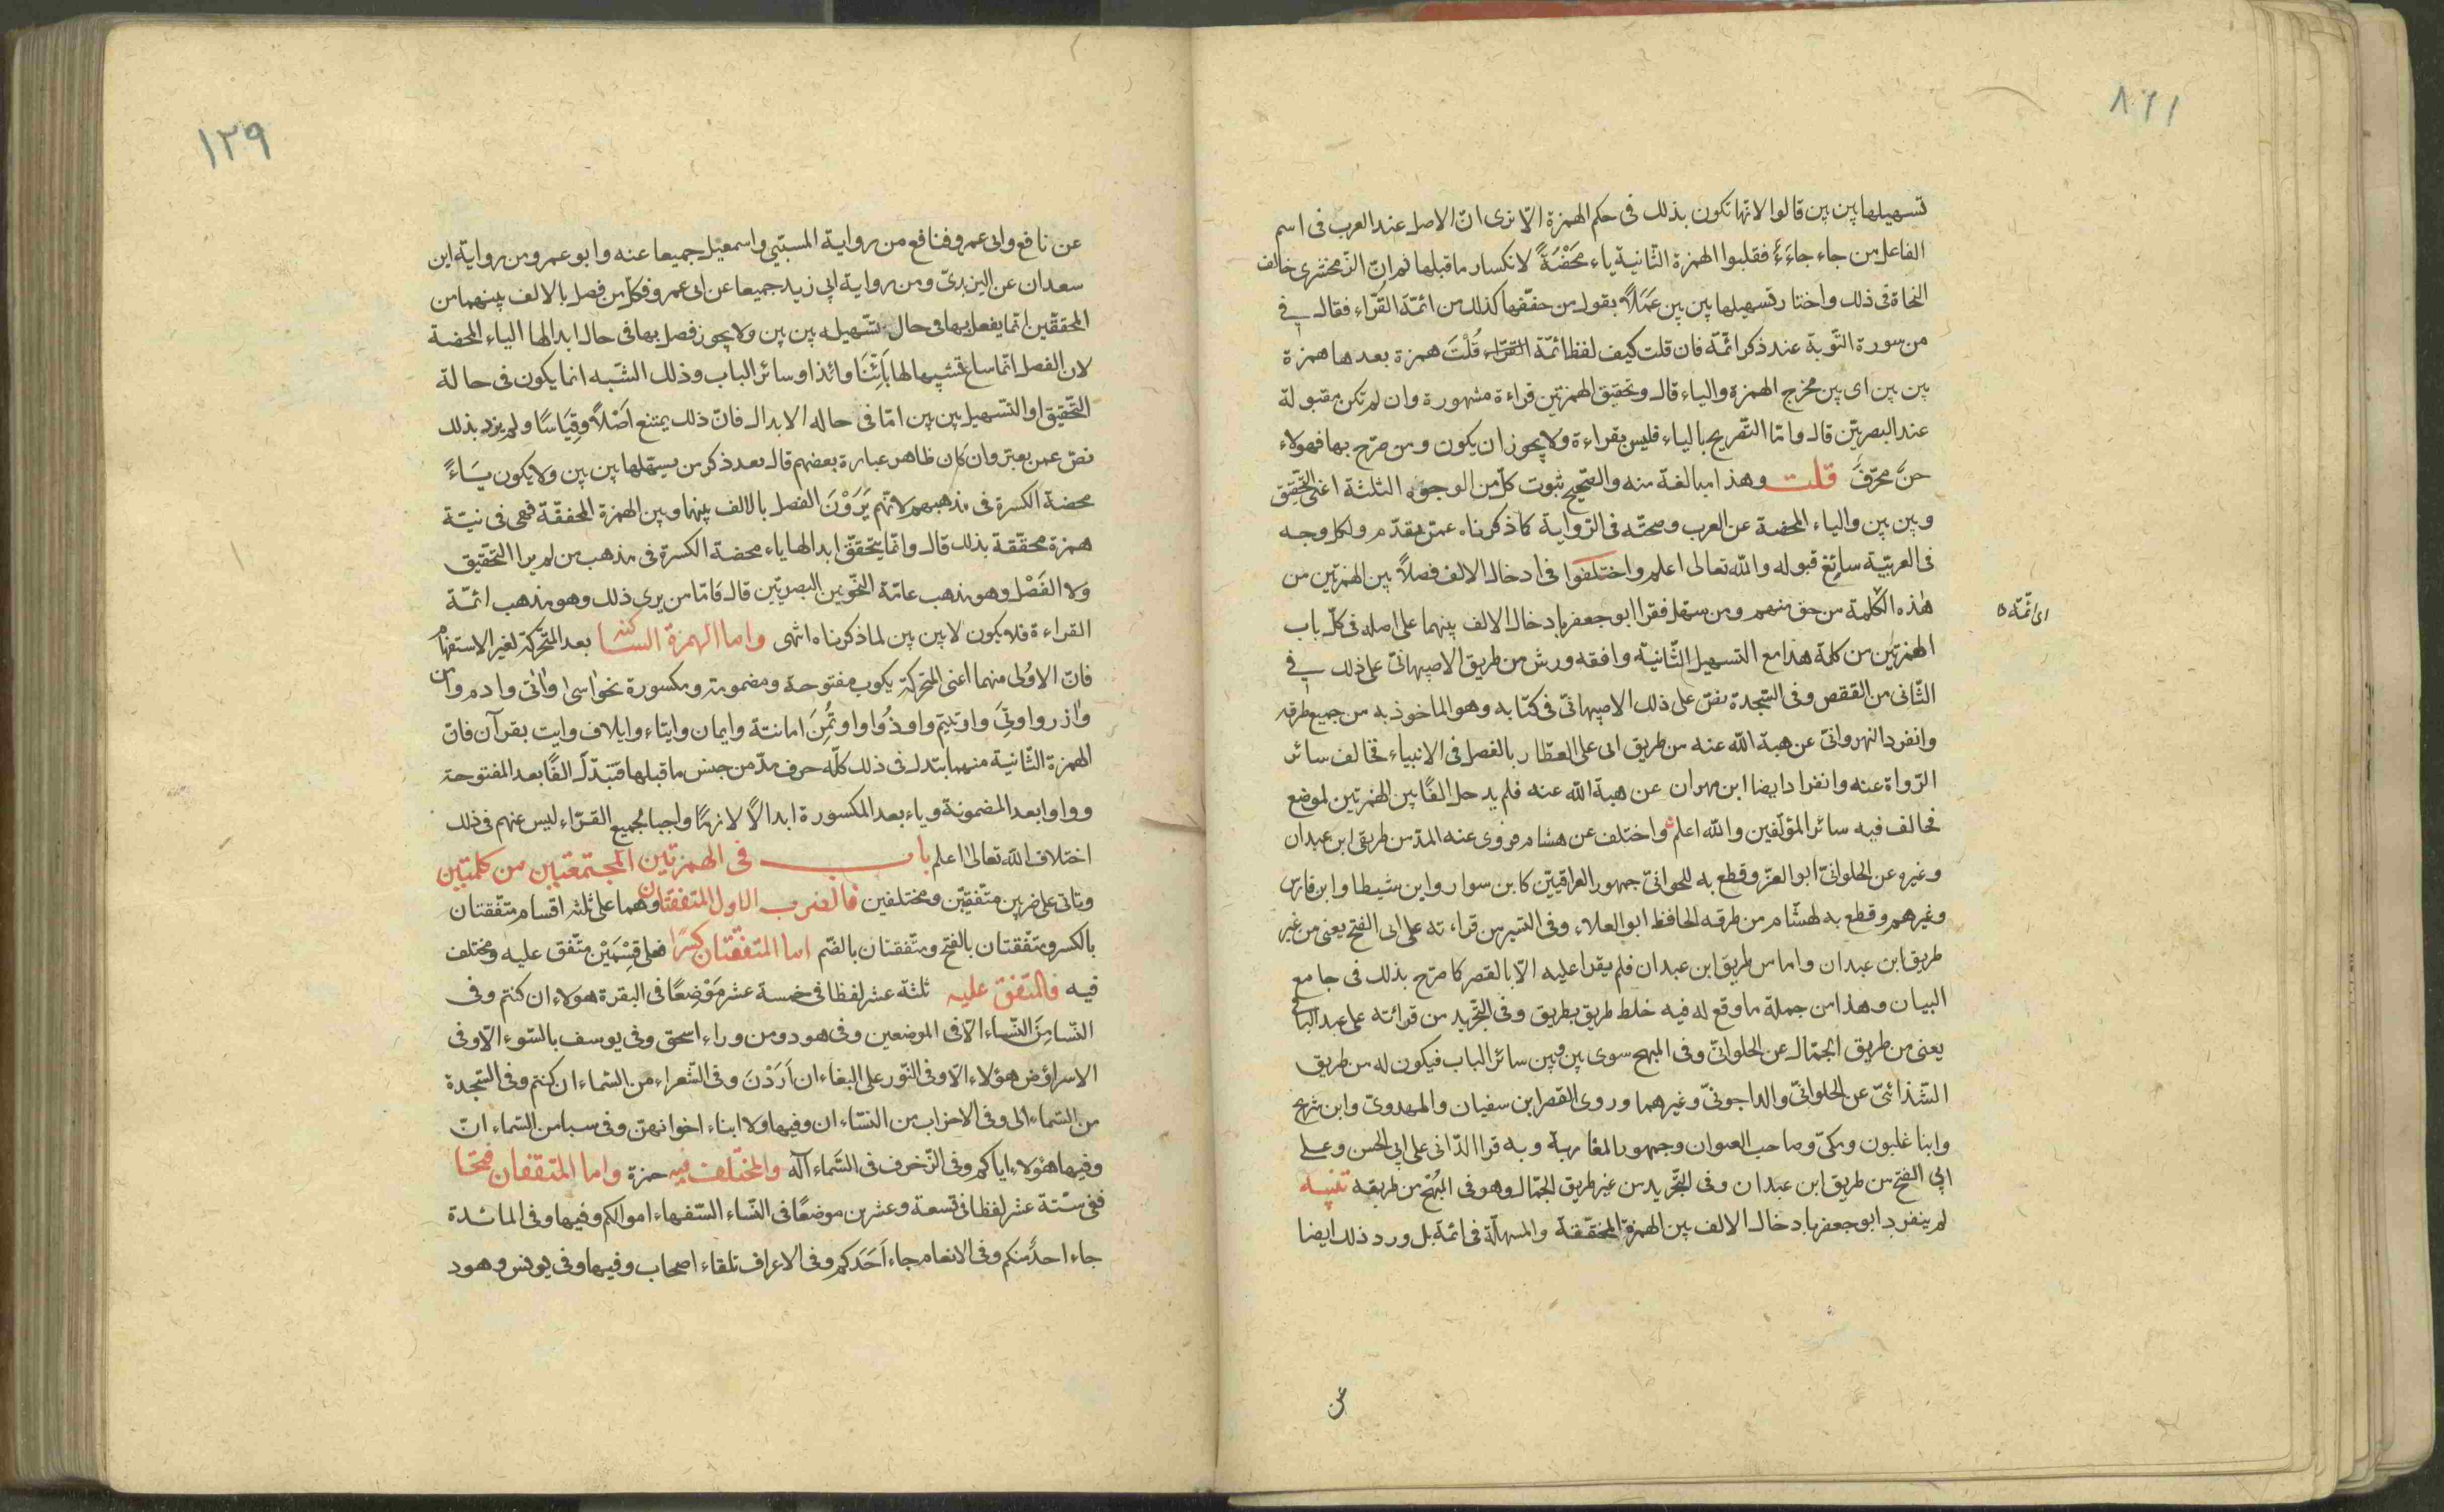 ١٢٨
تسهيلها بين بين قالوا لانها تكون بذلك فى حكم الهمزة الا ترى انّ الاصل عند العرب فى اسم
الفاعل من جاء جاءَءٌ فقلبوا الهمزة الثّانية ياء مَحْضَةً لانكسار ما قبلها ثم انّ الزّمخشرى خالف
النحاة فى ذلك واختار تسهيلها بين بين عَمَلاً بقول من حفّفها كذلك من ائمّة القُرّاء فقال فى
من سورة التّوبة عند ذكر ائمّة فان قلت كيف لفظ ائمّة القرّاء قُلْتَ همزة بعدها همزة
بين بين اى بين مخرج الهمزة والياء قال وتحقيق الهمزتين قراءة مشهورة وان لم تكن مقبولة
عند البصريّين قال وامّا التّصريح بالياء فليس بقراءة ولا يجوز ان يكون ومن صرّح بها فهولاء
حنّ محرّفَ قلت وهذا مبالغة منه والصّحيح ثبوت كلّ من الوجوه الثلثة اعنى التحقيق
وبين بين والياء المحضة عن العرب وصحّته فى الرّواية كما ذكرناه عمّن تقدّم ولكل وجه
فى العربيّة سائغ قبوله والله تعالى اعلم واختلفوا فى ادخال الالف فصلاً بين الهمزتين من
هٰذه الكلمة من حقق منهم ومن سهل فقرا ابو جعفر بادخال الالف بينهما على اصله فى كلّ باب
اى ائمّة
الهمزتين من كلمة هذا مع التسهيل الثّانية وافقه ورش من طريق الاصبهانىّ على ذلك فى
الثّانى من القصص وفى السّجدة نصّ على ذلك الاصبهانىّ فى كتابه وهو الماخوذ به من جميع طرقه
وانفرد النهروانىّ عن هبة الله عنه من طريق ابى على العطّار بالفصل فى الانبياء فخالف سائر
الرّواة عنه وانفرد ايضا ابن مهران عن هبة الله عنه فلم يدخل الفًا بين الهمزتين لموضع
فخالف فيه سائر المؤلّفين والله اعلم واختلف عن هشام فروى عنه المدّ من طريق ابن عبدان
وغيره عن الحلوانىّ ابو العزّ وقطع به للحوانىّ جمهور العراقيّين كابن سوار وابن شيطا وابن فارس
وغيرهم وقطع به لهشّام من طرقه الحافظ ابو العلاء وفى التسير من قراءته على ابى الفتح يعنى من غير
طريق ابن عبدان واما من طريق ابن عبدان فلم يقرا عليه الّا بالقصر كما صرّح بذلك فى جامع
البيان وهذا من جملة ما وقع له فيه خلط طريق بطريق وفى التّجريد من قرائته على عبد الباقى
يعنى من طريق الجمّال عن الحلوانىّ وفى المبهج سوى بين بين سائر الباب فيكون له من طريق
الشّذائىّ عن الحلوانىّ والداجونىّ وغيرهما وروى القصر ابن سفيان والمهدوىّ وابن شريح
وابنا غلبون ومكىّ وصاحب العنوان وجمهور المغاربة وبه قرا الدّانى على ابى الحسن وعلى
ابى الفتح من طريق ابن عبدان وفى التّجريد من غير طريق الجمّال وهو فى المُبْهج من طريقيه تنبيه
لم ينفرد ابو جعفر بادخال الالف بين الهمزة المحقّقة والمسهلّة فى ائمّة بل ورد ذلك ايضا
عن
١٢٩
عن نافع وابى عمرو فنافع من رواية المسيّبي واسمعيل جميعا عنه وابو عمرو من رواية ابن
سعدان عن اليزيدىّ ومن رواية ابى زيد جميعا عن ابى عمرو فكلّ من فصل بالالف بينهما من
المحقّقين انّما يفعل بها فى حال تسهيله بين بين ولا يجوز فصل بها فى حال ابدالها الياء المحضة
لان الفصل انّما ساغ تشبيها لها بَائِنَّا وائذا وسائر الباب وذلك الشّبه انما يكون فى حالة
التّحقيق او التّسهيل بين بين امّا فى حاله الابدال فانّ ذلك يمتنع اَصْلاً وقِيَاسًا ولم يرد بذلك
نصّ عمن يعتبر وان كان ظاهر عبارة بعضهم قال بعد ذكر من يسهلها بين بين ولا يكون يَاءً
محضة الكسرة فى مذهبهم لانّهم يَرَوْنَ الفصل بالالف بينها وبين الهمزة المحققة فهى فى نيّة
همزة محقّقة بذلك قال وانّما يتحقّق ابدالها ياء محضة الكسرة فى مذهب من لم يرا التّحقيق
ولا الفَصْل وهو مذهب عامّة النّحويين البصريّين قال فَامّا من يرى ذلك وهو مذهب ائمّة
القراءة فلا يكون لا بين بين لما ذكرناه انتهى واما الهمزة الساكنة بعد المتحّركة لغير الاستفهام
فانّ الاوُلى منهما اعنى المتحركة يكوب مفتوحة ومضمومة ومكسورة نحو اسى واٰتى وادم وآمن
وآزر واوتِىَ واوتيتم واوذُوا واوتُمِنَ امانته وايمان وايتاء وايلاف وايت بقرآن فانّ
الهمزة الثّانية منهما ابتدل فى ذلك كلّه حرف مدّ من جنس ما قبلها فتبدّل الفًا بعد المفتوحة
وواوا بعد المضمونة وياء بعد المكسورة ابدالاً لازمًا واجبا لجميع القرّاء ليس عنهم فى ذلك
اختلاف الله تعالى اعلم باب فى الهمزتين المجتمعتين من كلمتين
وتاتى على ضربين متّفقيّن ومختلفين فالضرب الاول المتفقتان وهما على ثلثه اقسام متّفقتان
بالكسر ومتّفقتان بالفتح ومتّفقتان بالضّم اما المتّفقتان كسرًا فعلى قِسْمَيْن متّفق عليه ومختلف
فيه فالمتفق عليه ثلثة عشر لفظا فى خمسة عشر مَوْضِعًا فى البقرة هولاء ان كنتم وفى
النّسا مِنَ النّساء الّا فى الموضعين وفى هود ومن وراء اسحق وفى يوسف بالسّوء الّا وفى
الاسرا وص هؤلاء الّا وفى النّور على البغاء ان اَرَدْنَ وفى الشّعراء من السّماء ان كنتم وفى السّجدة
من السّماء الى وفى الاحزاب من النسّاء ان وفيها ولا ابناء اخوانهنّ وفى سبا من السّماء انّ
وفيها هٰؤلاء اياكم وفى الزّخرف فى السَّماء اله والمختلف فيه حمزة واما المتقفان فتحا
ففى ستّة عشر لفظا فى تسعة وعشرين موضعًا فى النّساء السّفهاء اموالكم وفيها وفى المائدة
جاء احدٌ منكم وفى الانعام جاء اَحَدَكم وفى الاعراف تلقاء اصحاب وفيها وفى يونس وهود